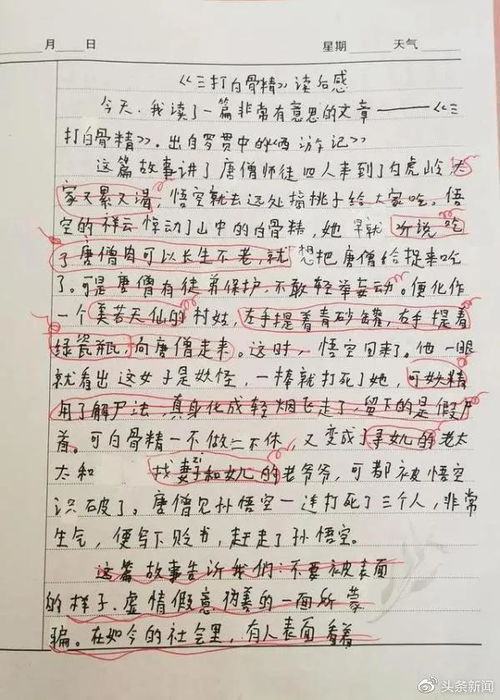 月 日 星期 天气
《三打白骨精》读后感
今天,我读了一篇非常有意思的文章——《三
打白骨精》.出自罗贯中的《西游记》
这篇故事讲了唐僧师徒四人来到了白虎岭,大
家又累又渴,悟空就去远处摘桃子给大家吃。悟
空的祥云惊动了山中的白骨精,她早就听说吃
了唐僧肉可以长生不老,就想把唐僧给捉来吃
了。可是唐僧有徒弟保护,不敢轻举妄动。便化作
一个美若天仙的村姑,左手提着青砂罐,右手提着
绿瓷瓶,向唐僧走来。这时,悟空回来了。他一眼
就看出这女子是妖怪,一棒就打死了她,可妖精
用了解尸法,真身化成轻烟飞走了,留下的是假尸
首。可白骨精一不做二不休,又变成了寻女儿的老太
太和 找妻子和女儿的老爷爷,可都被悟空
识破了。唐僧见孙悟空一连打死了三个人,非常
生气,便写下贬书,赶走了孙悟空。
这篇故事告诉我们:不要被表面
的样子.虚情假意.伪善的一面所蒙
骗。在如今的社会里,有人表面看着
头条新闻